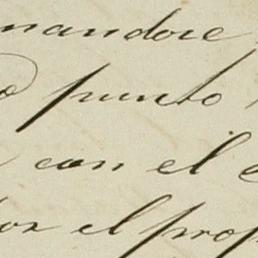 nandore
punto
con el
por el prop